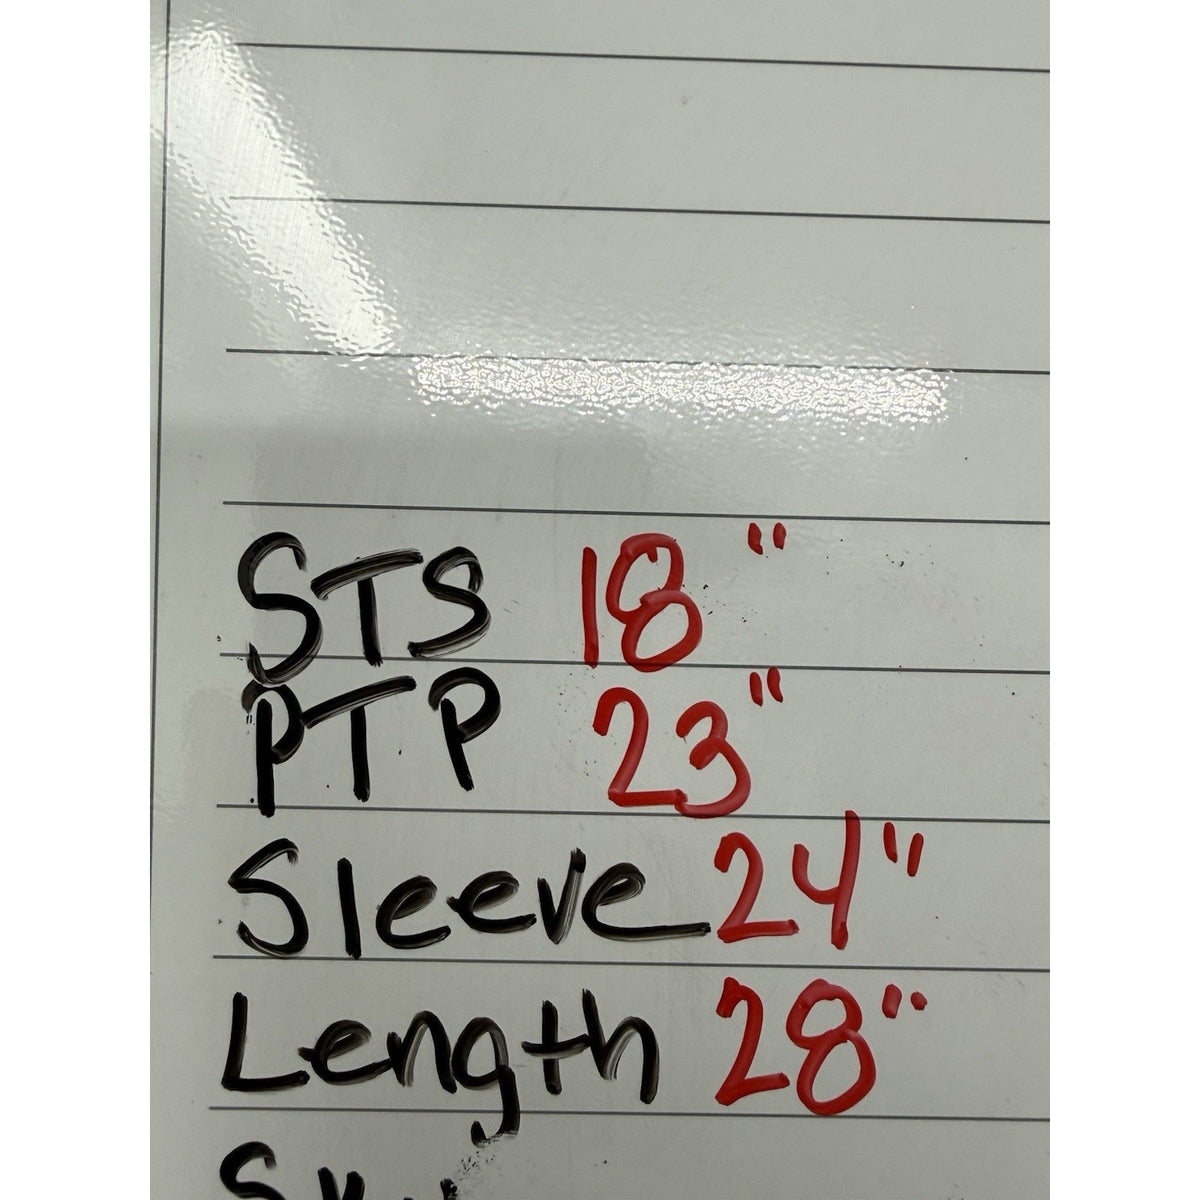 STS 18"
PTP 23"
Sleeve 24"
Length 28"